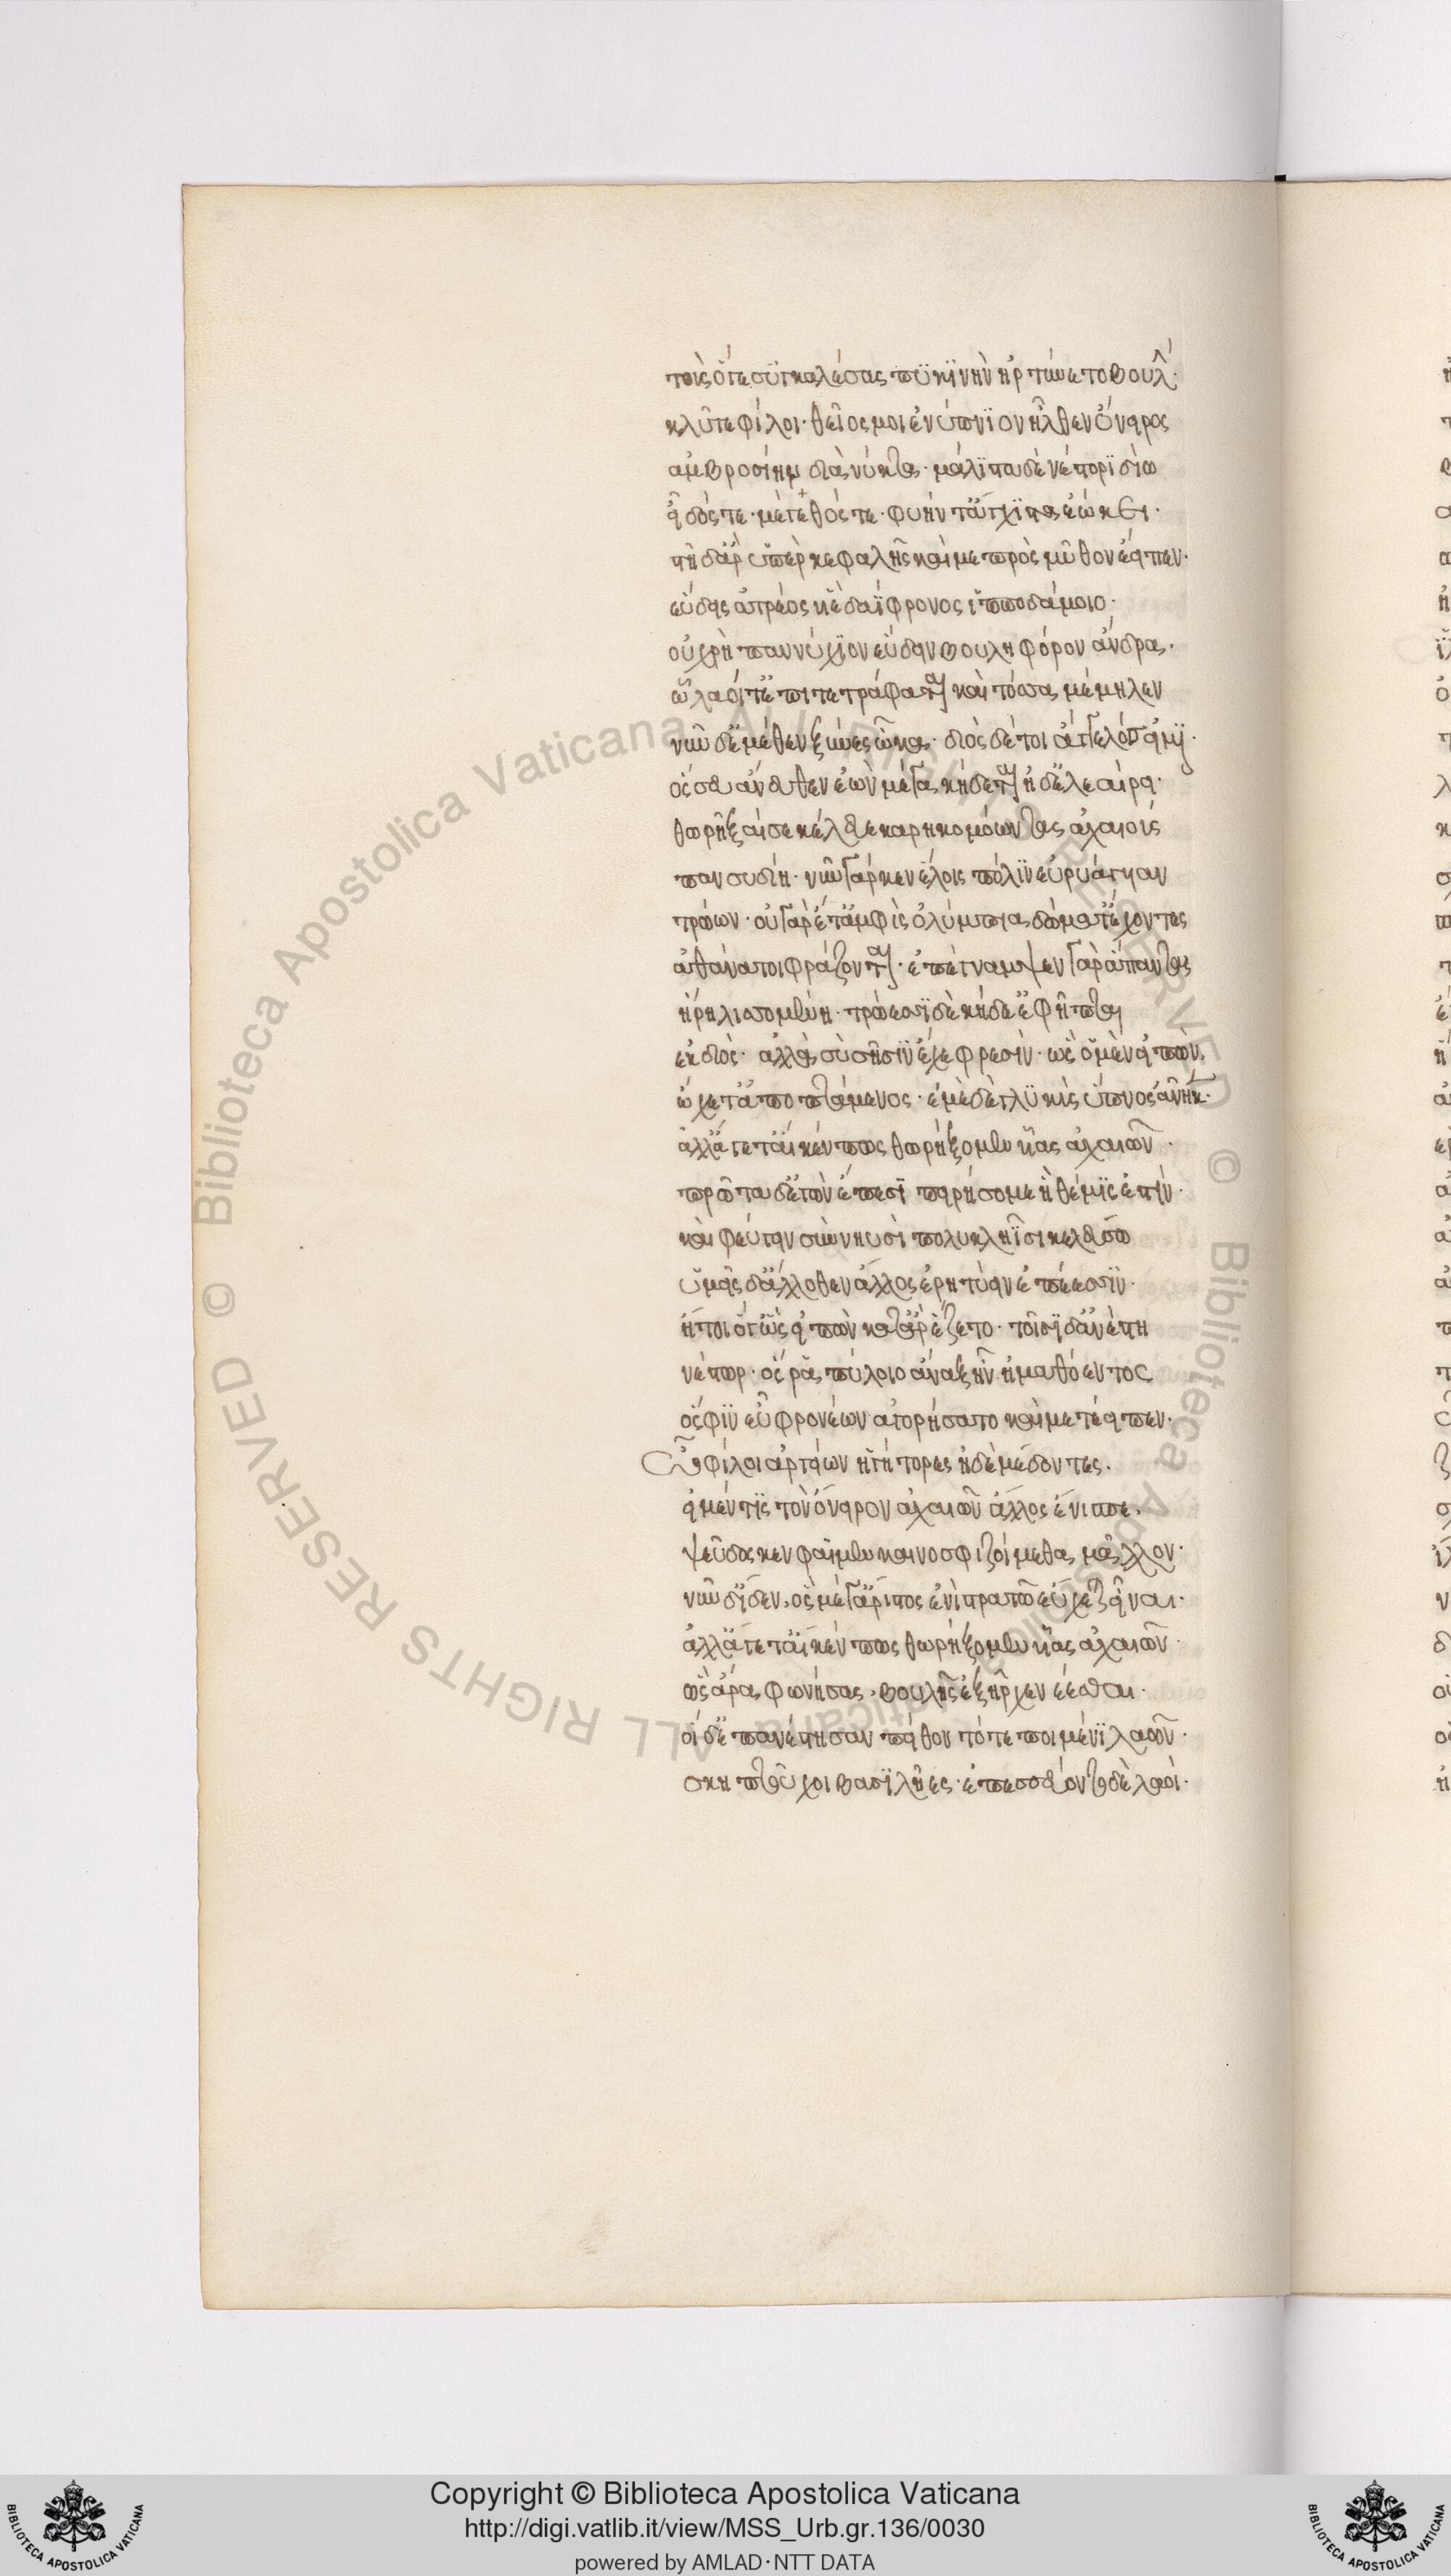 τοὺς ὅγε συγκαλέσας πυκινὴν ἠρτύνετο βουλ
κλῦτε φίλοι· θεῖός μοι ἐνύπνιον ἦλθεν ὄνειρος
αμβροσίην διὰ νύκτα· μάλιστα δὲ νέστορι δίω
εἶδός τε· μέγεθός τε· φυήν τ' ἄγχιστα ἐώκει·
στῆ δ' ἄρ ὑπὲρ κεφαλῆς καί με πρὸς μῦθον έειπεν·
εὕδεις ἀτρέος υἱὲ δαΐφρονος ἱπποδάμοιο·
οὐ χρὴ παννύχιον εὕδειν βουληφόρον ἄνδρα·
ὧ λαοί τ' ἐπιτετράφαται καὶ τόσσα μέμηλεν
νῦν δ' ἐμέθεν ξύνες ὦκα· διὸς δέ τοι άγγελός εἰμι·
ὃς σευ άνευθεν ἐὼν μέγα κήδεται ἠδ' ἐλεαίρει·
θωρῆξαί σε κέλευε καρηκομόωντας ἀχαιοὺς
πανσυδίη· νῦν γάρ κεν ἕλοις πόλιν εὐρυάγυιαν
τρώων· οὐ γὰρ έτ' ἀμφὶς ὀλύμπια δώματ' ἔχοντες
ἀθάνατοι φράζονται· ἐπέγναμψεν γὰρ ἅπαντας
ήρη λισσομένη· τρώεσσι δὲ κήδε' ἐφῆπται
εκ διὸς· ἀλλὰ σὺ σῆσιν έχε φρεσίν· ὡς ὁ μὲν εἰπὼν
ώχετ' ἀποπτάμενος· ἐμὲ δὲ γλυκὺς ύπνος ἀνῆκ·
ἀλλ' άγετ' αἴ κέν πως θωρήξομεν υἷας ἀχαιῶν·
πρῶτα δ' ἐγὼν έπεσι πειρήσομαι ἣ θέμις ἐστίν·
καὶ φεύγειν σὺν νηυσὶ πολυκληῖσι κελεύσω
ὑμεῖς δ' άλλοθεν άλλος ἐρητύειν ἐπέεσσιν·
ήτοι ὅγ' ὣς εἰπὼν κατ' ἄρ έζετο· τοῖσι δ' ἀνέστη
νέστωρ· ὅς ρα πύλοιο άναξ ἦν ἠμαθόεντος
ὅς φιν ἐυφρονέων αγορήσατο καὶ μετέειπεν·
Ὦ φίλοι ἀργείων ἡγήτορες ἠδὲ μέδοντες·
εἰ μέν τις τὸν όνειρον ἀχαιῶν άλλος ένισπε,
ψεῦδός κεν φαῖμεν καὶ νοσφιζοίμεθα μᾶλλον·
νῦν δ' ἴδεν, ὃς μέγ' άριστος ἐνὶ στρατῶ εύχεται εἶναι·
ἀλλ' άγετ' αἴ κέν πως θωρήξομεν υἷας ἀχαιῶν·
ὣς άρα φωνήσας, βουλῆς ἐξῆρχεν νέεσθαι·
οἱ δ' ἐπανέστησαν πείθον τό τε ποιμένι λαῶν·
σκηπτοῦχοι βασιλῆες· ἐπεσσεύοντο δὲ λαοί·